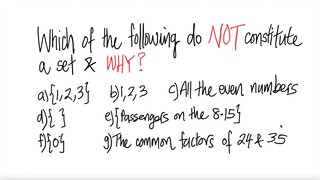 Which of the following do NOT constitute
a set & WHY?
a){1,2,3} b)1,2,3 c)All the even numbers
d){ } e){Passengers on the 8.15}
f){0} g)The common factors of 24 & 35